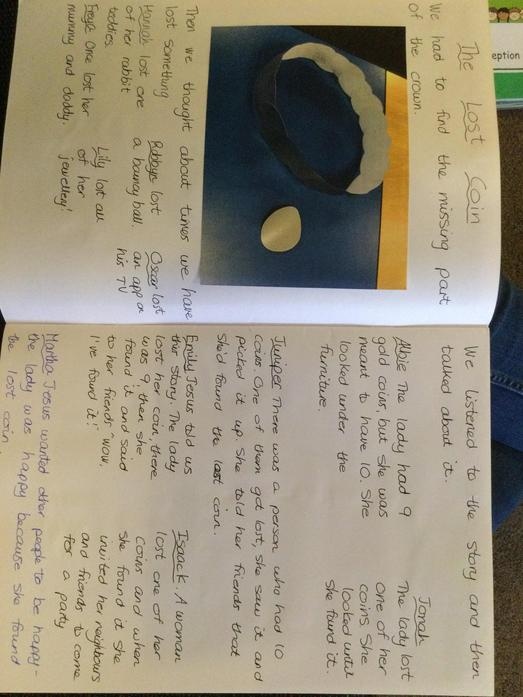 The Lost Coin
We had to find the missing part
of the crown.
Then we thought about times we have
lost something
Hannah lost one
of her rabbit
teddies.
Robbye lost
a bouncy ball.
Oscar lost
an app on
his TV
Freya Once lost her
mummy and daddy.
Lily lost all
of her
jewellery!
We listened to the story and then
talked about it.
Albie The lady had 9
gold coins, but she was
meant to have 10. She
looked under the
furniture.
Jonah
The lady lost
one of her
coins She
looked until
she found it.
Juniper There was a person who had 10
coins One of them got lost, she saw it and
picked it up. She told her friends that
she'd found the last coin.
Emily Jesus told us
this story. The lady
lost her coin, there
was 9, then she
found it and said
to her friends wow,
I've found it!'
Isaac K. A woman
lost one of her
coins and when
she found it she
invited her neighbours
and friends to come
for a party
Martha Jesus wanted other people to be happy-
the lady was happy because she found
the lost coin.
eption